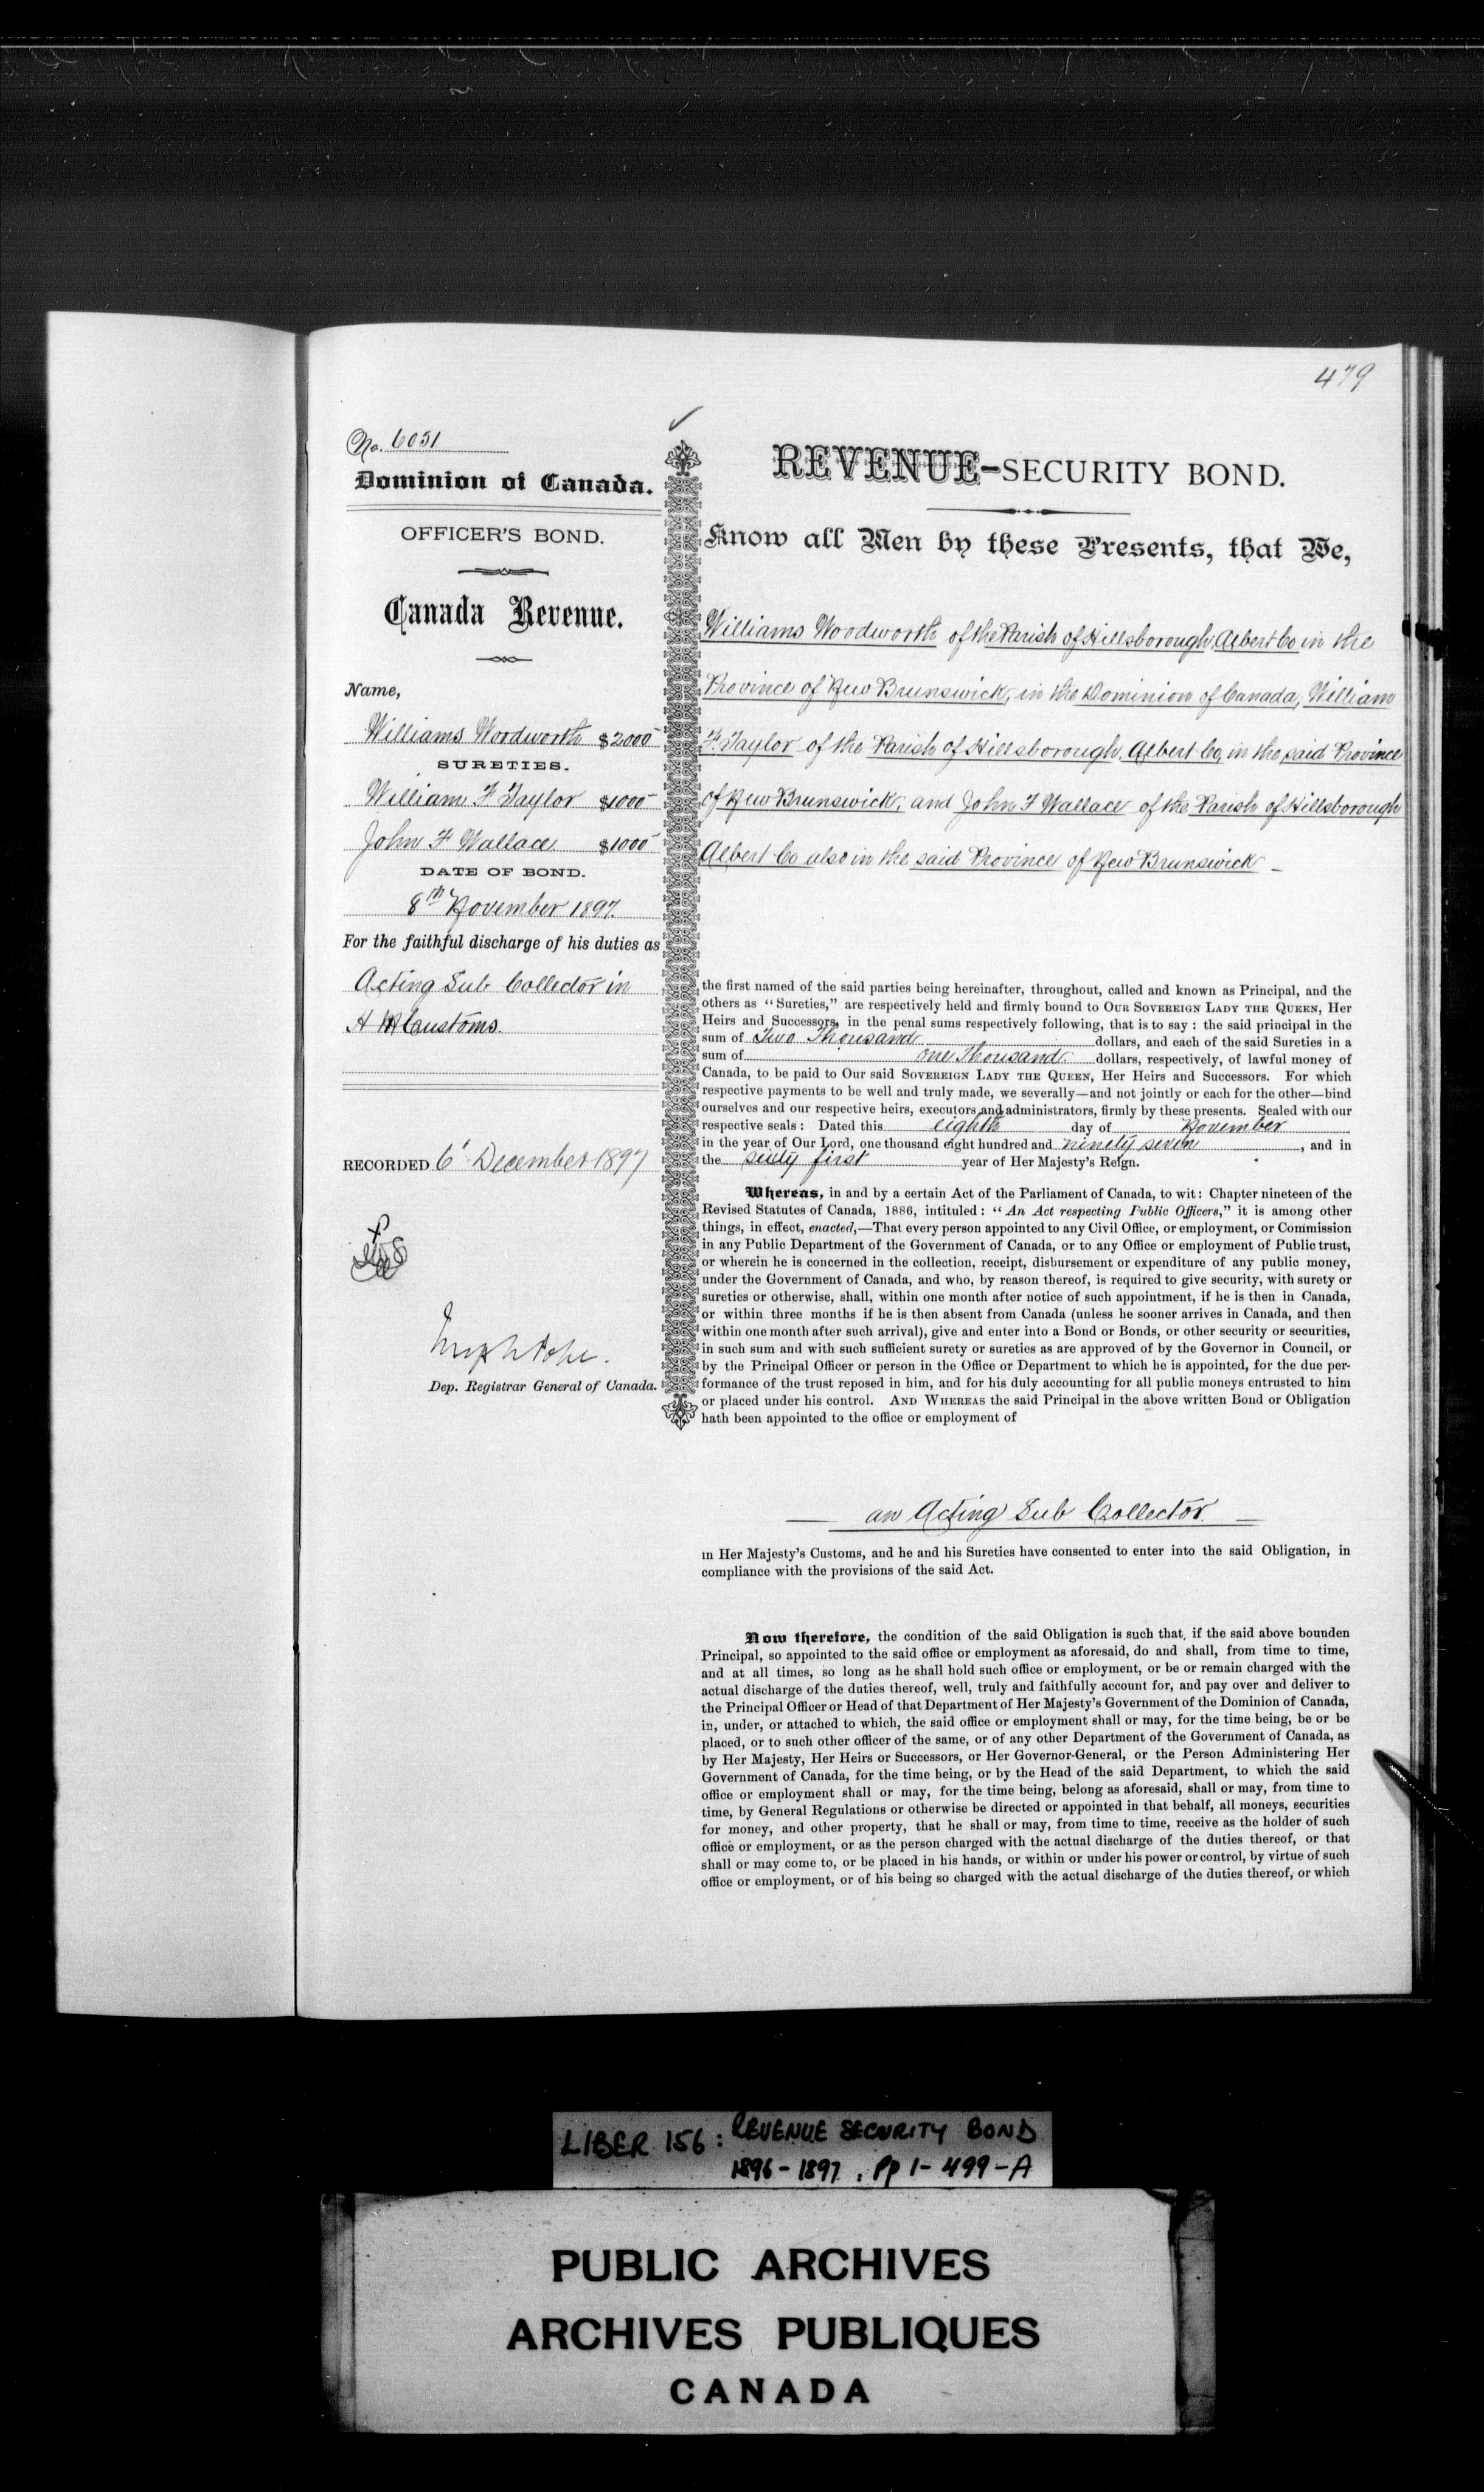 479
No. 6051
Dominion of Canada.
OFFICER'S BOND.
Canada Revenue.
Name,
Williams Wordworth $2000
SURETIES.
William F Taylor $1000
John F Wallace $1000
DATE OF BOND.
8th November 1897.
For the faithful discharge of his duties as
Acting Sub Collector in
H M Customs.
RECORDED 6' December 1897
Dep. Registrar General of Canada.
REVENUE-SECURITY BOND.
Know all Men by these Presents, that We,
Williams Woodworth of the Parish of Hillsborough, Albert Co in the
Province of New Brunswick, in the Dominion of Canada, William
F. Taylor of the Parish of Hillsborough, Albert Co, in the said Province
of New Brunswick, and John F Wallace of the Parish of Hillsborough
Albert Co also in the said Province of New Brunswick –
the first named of the said parties being hereinafter, throughout, called and known as Principal, and the
others as "Sureties," are respectively held and firmly bound to OUR SOVEREIGN LADY THE QUEEN, Her
Heirs and Successors, in the penal sums respectively following, that is to say : the said principal in the
sum of Two Thousand dollars, and each of the said Sureties in a
sum of one Thousand dollars, respectively, of lawful money of
Canada, to be paid to Our said SOVEREIGN LADY THE QUEEN, Her Heirs and Successors. For which
respective payments to be well and truly made, we severally—and not jointly or each for the other—bind
ourselves and our respective heirs, executors and administrators, firmly by these presents. Sealed with our
respective seals : Dated this eighth day of November
in the year of Our Lord, one thousand eight hundred and ninety seven, and in
the sixty first year of Her Majesty's Reign.
Whereas, in and by a certain Act of the Parliament of Canada, to wit : Chapter nineteen of the
Revised Statutes of Canada, 1886, intituled : "An Act respecting Public Officers," it is among other
things, in effect, enacted,—That every person appointed to any Civil Office, or employment, or Commission
in any Public Department of the Government of Canada, or to any Office or employment of Public trust,
or wherein he is concerned in the collection, receipt, disbursement or expenditure of any public money,
under the Government of Canada, and who, by reason thereof, is required to give security, with surety or
sureties or otherwise, shall, within one month after notice of such appointment, if he is then in Canada,
or within three months if he is then absent from Canada (unless he sooner arrives in Canada, and then
within one month after such arrival), give and enter into a Bond or Bonds, or other security or securities,
in such sum and with such sufficient surety or sureties as are approved of by the Governor in Council, or
by the Principal Officer or person in the Office or Department to which he is appointed, for the due per-
formance of the trust reposed in him, and for his duly accounting for all public moneys entrusted to him
or placed under his control. AND WHEREAS the said Principal in the above written Bond or Obligation
hath been appointed to the office or employment of
— an Acting Sub Collector —
in Her Majesty's Customs, and he and his Sureties have consented to enter into the said Obligation, in
compliance with the provisions of the said Act.
Now therefore, the condition of the said Obligation is such that, if the said above bounden
Principal, so appointed to the said office or employment as aforesaid, do and shall, from time to time,
and at all times, so long as he shall hold such office or employment, or be or remain charged with the
actual discharge of the duties thereof, well, truly and faithfully account for, and pay over and deliver to
the Principal Officer or Head of that Department of Her Majesty's Government of the Dominion of Canada,
in, under, or attached to which, the said office or employment shall or may, for the time being, be or be
placed, or to such other officer of the same, or of any other Department of the Government of Canada, as
by Her Majesty, Her Heirs or Successors, or Her Governor-General, or the Person Administering Her
Government of Canada, for the time being, or by the Head of the said Department, to which the said
office or employment shall or may, for the time being, belong as aforesaid, shall or may, from time to
time, by General Regulations or otherwise be directed or appointed in that behalf, all moneys, securities
for money, and other property, that he shall or may, from time to time, receive as the holder of such
office or employment, or as the person charged with the actual discharge of the duties thereof, or that
shall or may come to, or be placed in his hands, or within or under his power or control, by virtue of such
office or employment, or of his being so charged with the actual discharge of the duties thereof, or which
LIBER 156 : REVENUE SECURITY BOND
1896-1897 . Pp 1-499-A
PUBLIC ARCHIVES
ARCHIVES PUBLIQUES
CANADA